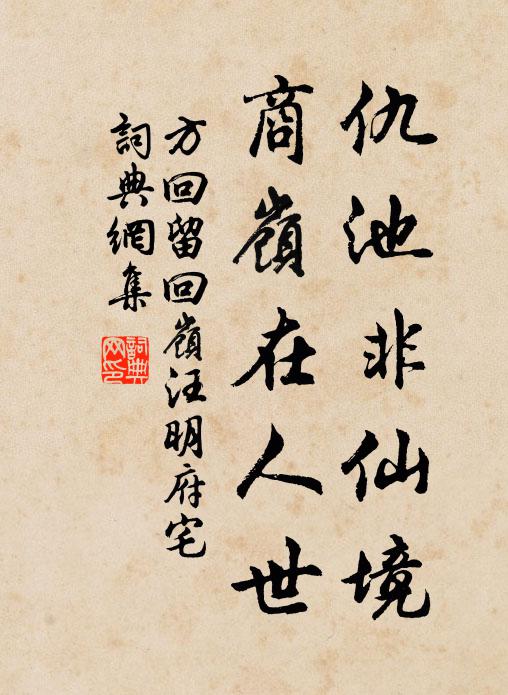 仇池非仙境
商嶺在人世
方回留回嶺汪明府宅
詞典網集
詞典网印